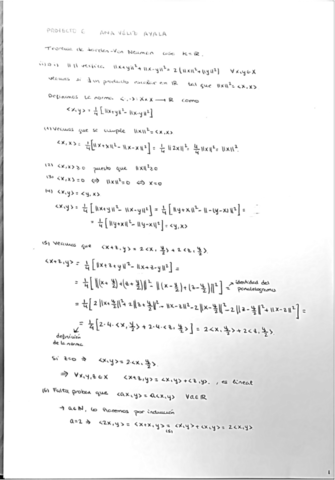 Teorema de Jordan-Von Neumann con K=ℝ.
(i) ⇒ ii) ||·|| verifica ||x+y||²+||x-y||² = 2(||x||²+||y||²) ∀x,y∈X
Veamos que ∃ un producto escalar en ℝ tal que ||x||²=<x,x>
Definimos la norma <·,·>: X×X → ℝ como
<x,y> = 1/4 [||x+y||² - ||x-y||²]
(1) Veamos que se cumple ||x||² = <x,x>
<x,x> = 1/4 [||x+x||² - ||x-x||²] = 1/4 ||2x||² = 4/4 ||x||² = ||x||²
(2) <x,x> ≥ 0 puesto que ||x||² ≥ 0
(3) <x,x> = 0 ⇔ ||x||² = 0 ⇔ x=0
(4) <x,y> = <y,x>
<x,y> = 1/4 [||x+y||² - ||x-y||²] = 1/4 [||y+x||² - ||-(y-x)||²] =
= 1/4 [||y+x||² - ||y-x||²] = <y,x>
(5) Veamos que <x+z,y> = 2<x,y/2> + 2<z,y/2>
<x+z,y> = 1/4 [||x+z+y||² - ||x+z-y||²] =
= 1/4 [||(x+y/2)+(z+y/2)||² - ||(x-y/2)+(z-y/2)||²] = identidad del paralelogramo
= 1/4 [2||x+y/2||² + 2||z+y/2||² - ||x-z||² - 2||x-y/2||² - 2||z-y/2||² + ||x-z||²] =
= 1/4 [2·4·<x,y/2> + 2·4·<z,y/2>] = 2<x,y/2> + 2<z,y/2>
definición
de la norma
Si z=0 ⇒ <x,y> = 2<x,y/2>
⇒ ∀x,y,z∈X <x+z,y> = <x,y> + <z,y>, es lineal
(6) Falta probar que <ax,y> = a<x,y> ∀a∈ℝ
→ a∈ℕ, lo hacemos por inducción
a=2 ⇒ <2x,y> = <x+x,y> = <x,y> + <x,y> = 2<x,y>
(5)
1